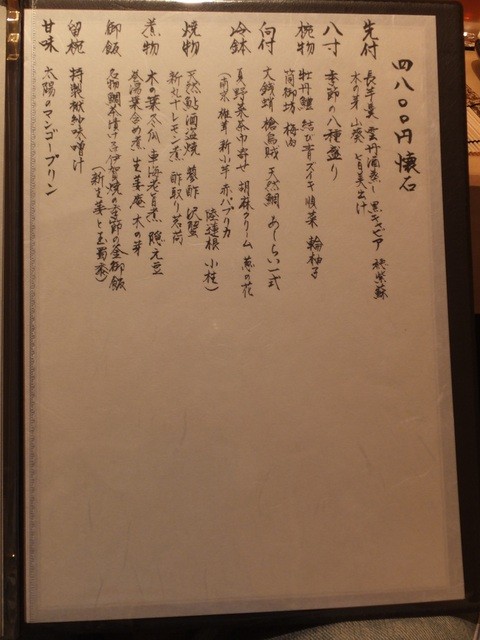 四八〇〇円懐石
先付 長芋羹 雲丹酒蒸し 黒キャビア 穂紫蘇
木の芽 山葵 旨美出汁
八寸 季節の八種盛り
椀物 牡丹鱧 結び青ズイキ 順菜 輪柚子
筒御坊 梅肉
向付 大銭蛸 槍烏賊 天然鯛 あしらい一式
冷鉢 夏野菜茶巾寄せ 胡麻クリーム 葱の花
(南京 椎茸 新小芋 赤パプリカ
陸蓮根 小柱)
焼物 天然鮎酒盗焼 蓼酢 沢蟹
新丸十レモン煮 酢取り茗荷
煮物 木の葉冬瓜 車海老旨煮 隠元豆
巻湯葉含め煮 生姜庵 木の芽
御飯 名物鯛茶漬け 伊賀焼の季節の釜御飯
(新生姜と玉蜀黍)
留椀 特製袱紗味噌汁
甘味 太陽のマンゴープリン